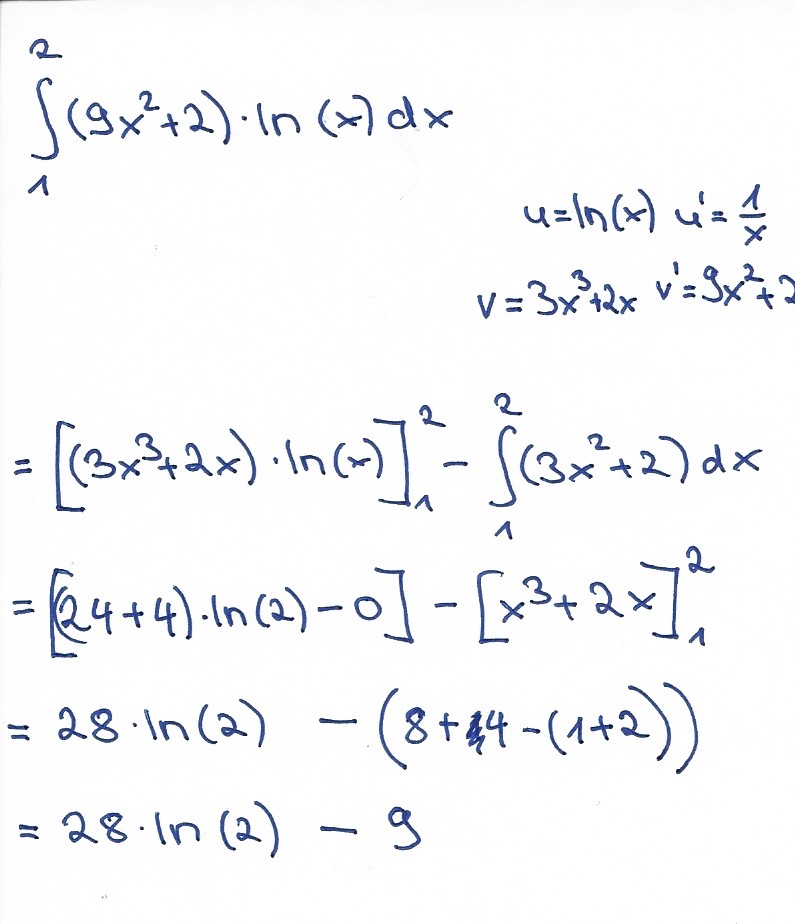 ∫₁² (9x²+2)·ln(x) dx
u=ln(x) u'=1/x
v=3x³+2x v'=9x²+2
= [(3x³+2x)·ln(x)]₁² - ∫₁² (3x²+2) dx
= [(24+4)·ln(2)-0] - [x³+2x]₁²
= 28·ln(2) - (8+4-(1+2))
= 28·ln(2) - 9